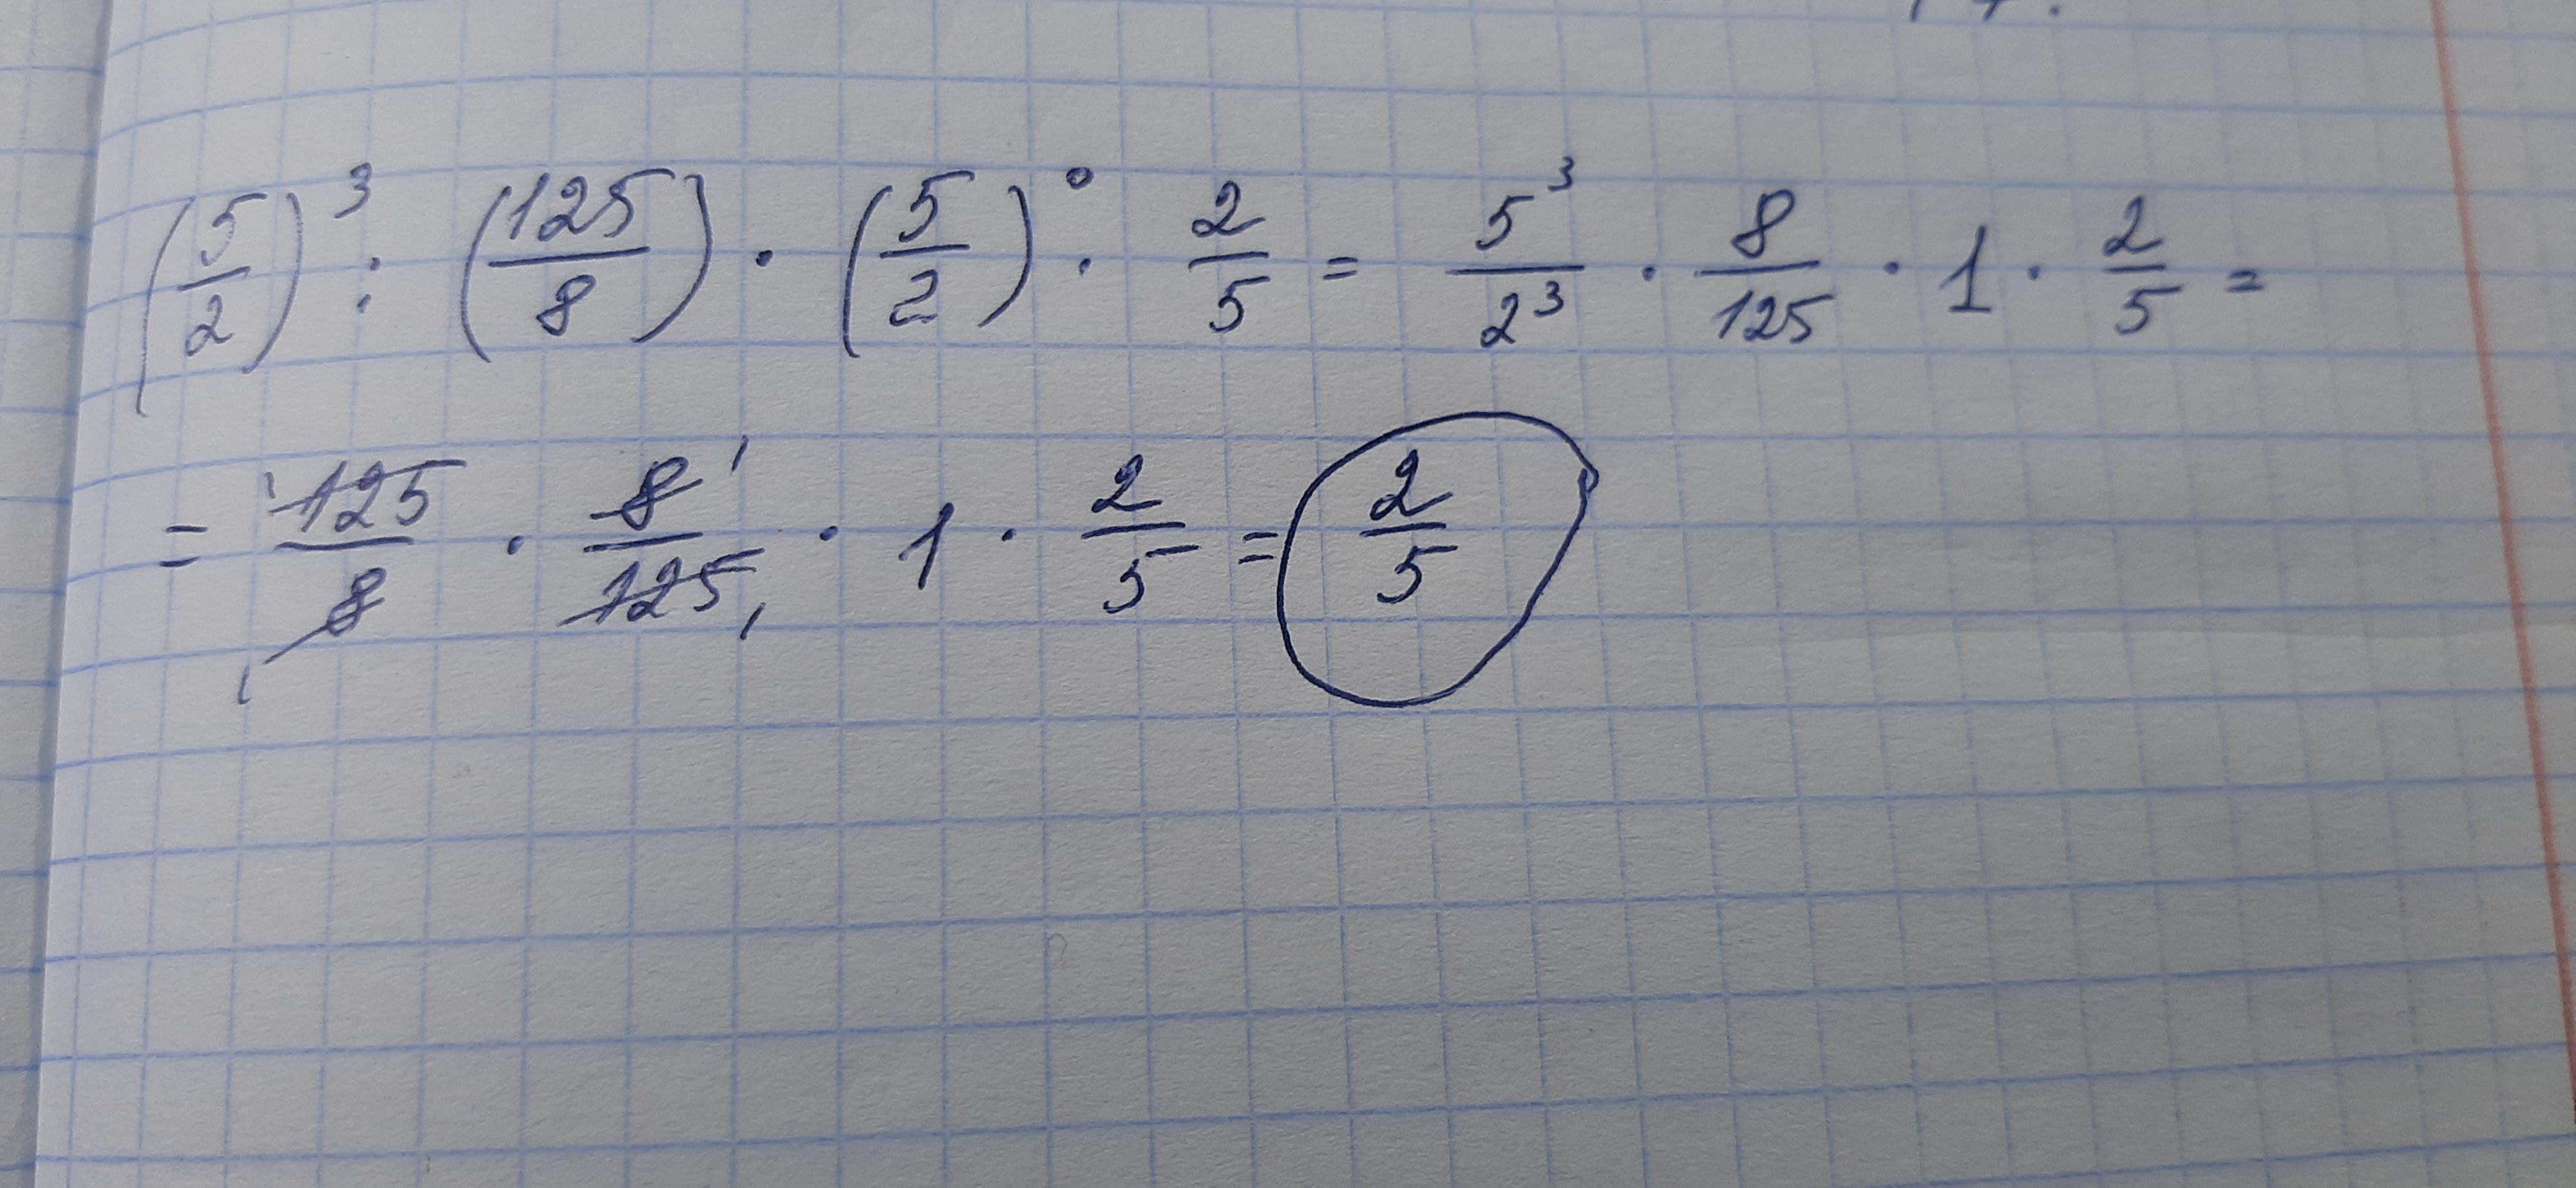 (5/2)³ : (125/8) · (5/2)⁰ · 2/5 = 5³/2³ · 8/125 · 1 · 2/5 =
= 125/8 · 8/125 · 1 · 2/5 = 2/5